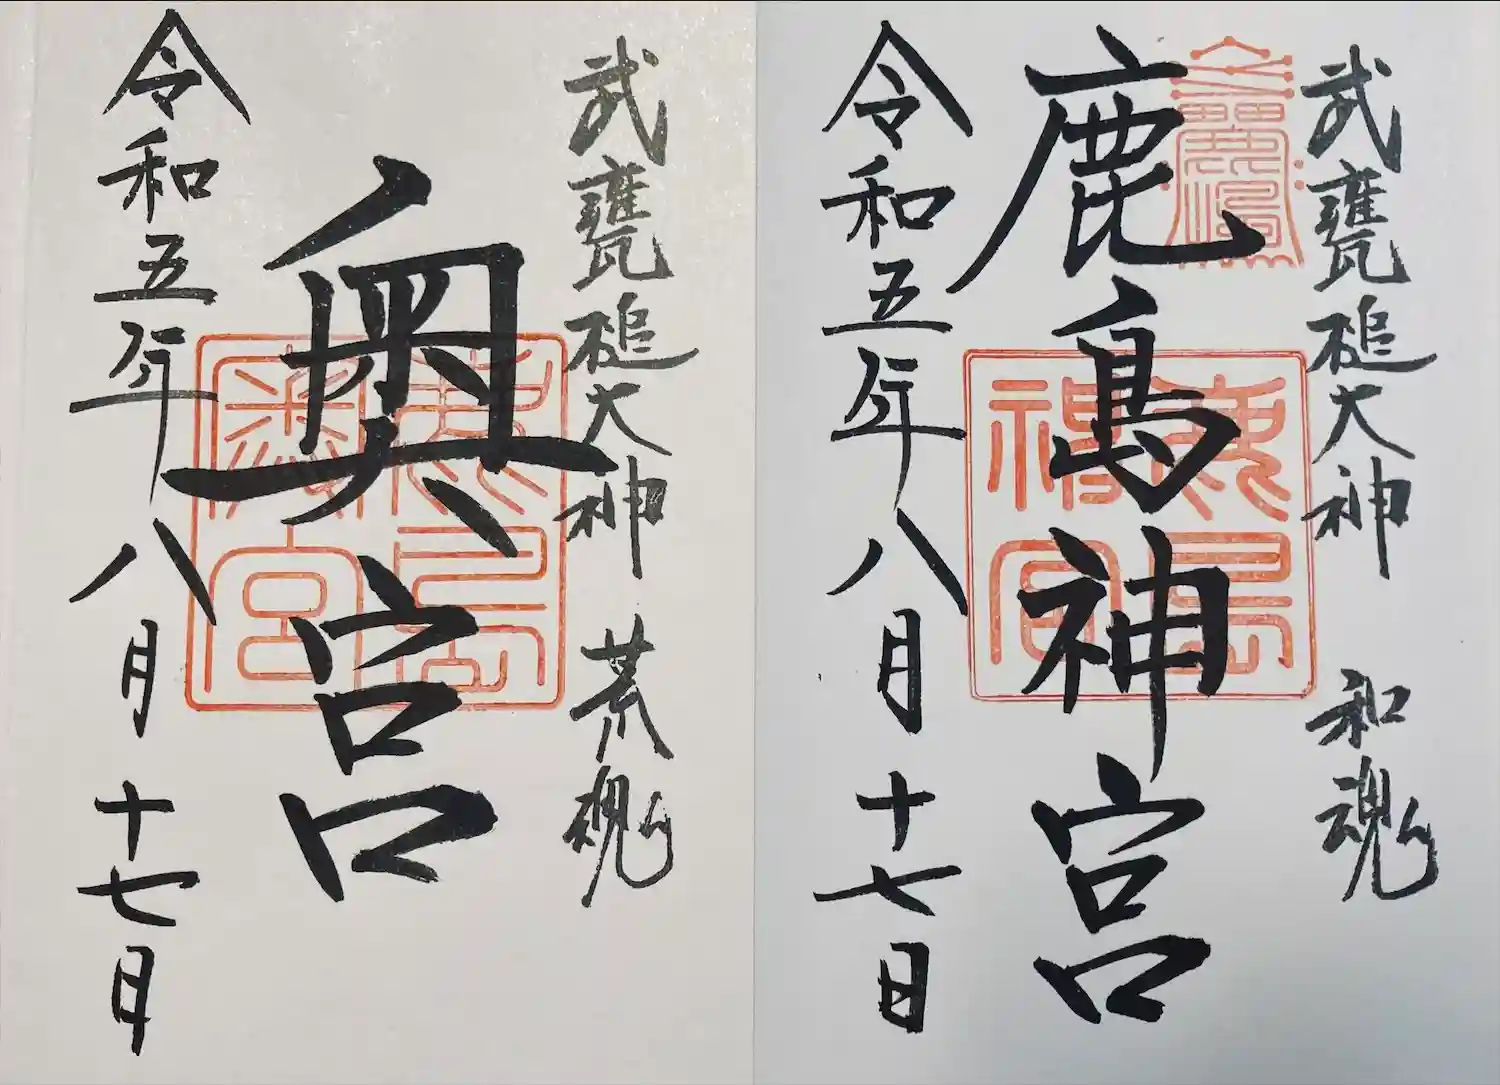 武甕槌大神 和魂
鹿島神宮
鹿島神宮
令和五年八月十七日
武甕槌大神 荒魂
奥宮
鹿島奥宮
令和五年八月十七日